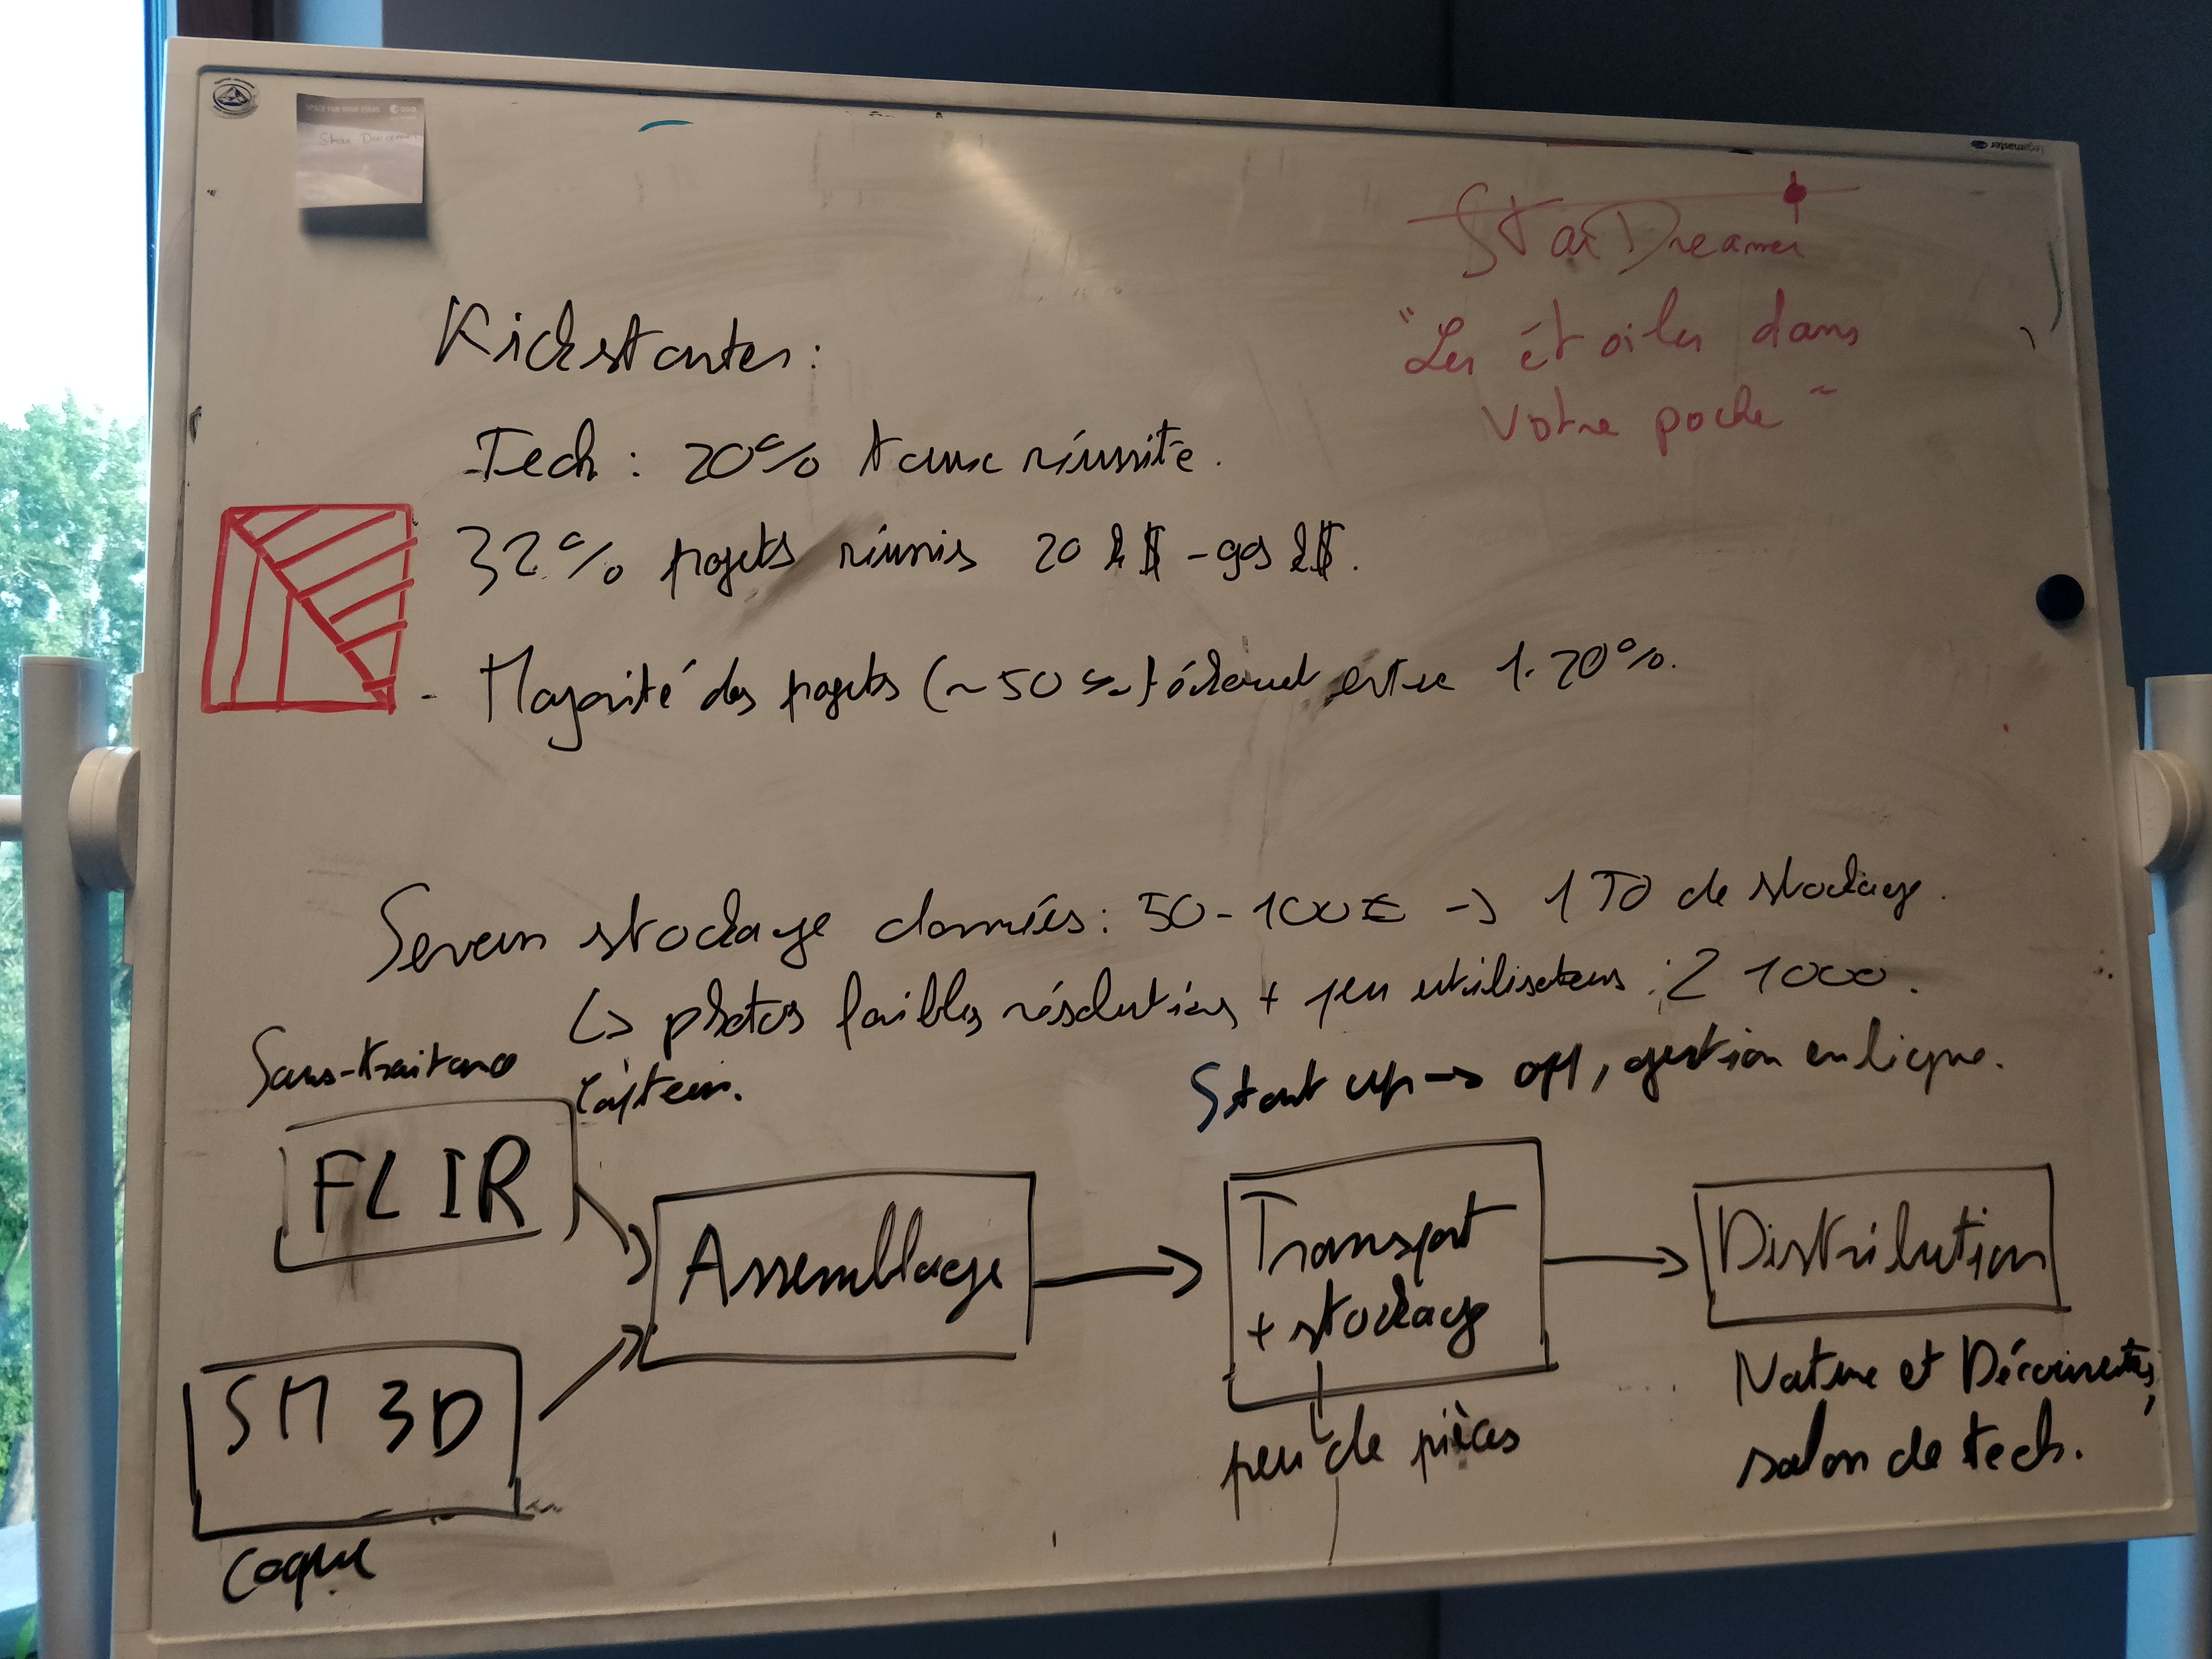 SPACE FOR YOUR IDEAS esa
Star Dreamer
Legamaster
StarDreamer
"Les étoiles dans
votre poche"
Kickstarter:
-Tech : 20% taux réussite.
32% projets réunis 20 k$ - 99 k$.
- Majorité des projets (~50 %) échouent entre 1-20%.
Serveur stockage données : 50-100€ -> 1 TO de stockage.
↳ photos faibles résolutions + peu utilisateurs : 1000.
Sous-traitance
Capteur.
Start up -> app, gestion en ligne.
FLIR
Assemblage
Transport
+ stockage
Distribution
SM 3D
Nature et Découvertes,
peu de pièces
salon de tech.
Coque